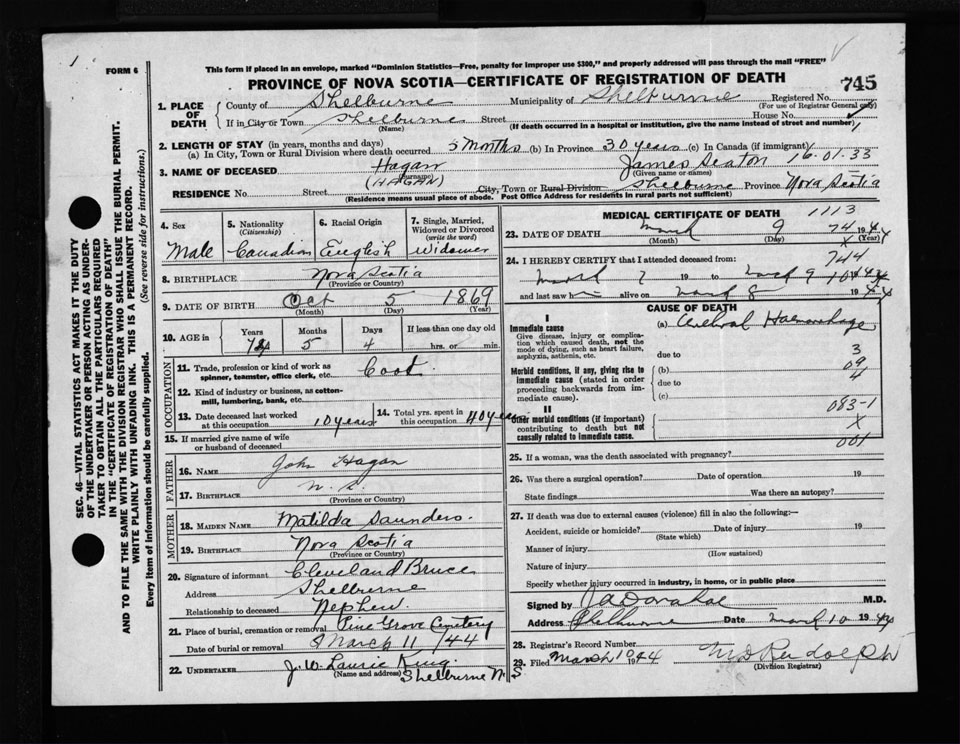 1
FORM 6
This form if placed in an envelope, marked "Dominion Statistics—Free, penalty for improper use $300," and properly addressed will pass through the mail "FREE"
PROVINCE OF NOVA SCOTIA—CERTIFICATE OF REGISTRATION OF DEATH
745
1. PLACE OF DEATH
County of Shelburne Municipality of Shelburne Registered No.
(For use of Registrar General only)
If in City or Town Shelburne Street House No.
(Name) (If death occurred in a hospital or institution, give the name instead of street and number)
2. LENGTH OF STAY (in years, months and days)
(a) In City, Town or Rural Division where death occurred 5 months (b) In Province 30 years (c) In Canada (if immigrant)
3. NAME OF DECEASED Hagan James Seaton 16.01.33
(HAGAN) (Surname) (Given name or names)
RESIDENCE No. Street City, Town or Rural Division Shelburne Province Nova Scotia
(Residence means usual place of abode. Post Office Address for residents in rural parts not sufficient)
4. Sex
Male
5. Nationality (Citizenship)
Canadian
6. Racial Origin
English
7. Single, Married, Widowed or Divorced (write the word)
Widower
8. BIRTHPLACE Nova Scotia
(Province or Country)
9. DATE OF BIRTH Oct 5 1869
(Month) (Day) (Year)
10. AGE in
Years Months Days If less than one day old
5 4 hrs. or min.
OCCUPATION
11. Trade, profession or kind of work as spinner, teamster, office clerk, etc. Cook
12. Kind of industry or business, as cotton-mill, lumbering, bank, etc.
13. Date deceased last worked at this occupation 10 years
14. Total yrs. spent in this occupation 40 years
15. If married give name of wife or husband of deceased
FATHER
16. NAME John Hagan
17. BIRTHPLACE N. S.
(Province or Country)
MOTHER
18. MAIDEN NAME Matilda Saunders.
19. BIRTHPLACE Nova Scotia
(Province or Country)
20. Signature of informant Cleveland Bruce
Address Shelburne
Relationship to deceased Nephew.
21. Place of burial, cremation or removal Pine Grove Cemetery
Date of burial or removal March 11 /44
22. UNDERTAKER J. W. Laurie King.
(Name and address) Shelburne N. S
MEDICAL CERTIFICATE OF DEATH 1113
23. DATE OF DEATH March 9 1944
74
(Month) (Day) X (Year)
24. I HEREBY CERTIFY that I attended deceased from:
744
March 7 19 to March 9 1944
and last saw him alive on March 8 1944
CAUSE OF DEATH
I
Immediate cause
Give disease, injury or complication which caused death, not the mode of dying, such as heart failure, asphyxia, asthenia, etc.
(a) Cerebral Haemorrhage
due to
3
09
4
Morbid conditions, if any, giving rise to immediate cause (stated in order proceeding backwards from immediate cause).
(b)
due to
(c)
083-1
II
Other morbid conditions (if important) contributing to death but not causally related to immediate cause.
X
001
25. If a woman, was the death associated with pregnancy?
26. Was there a surgical operation? Date of operation 19
State findings Was there an autopsy?
27. If death was due to external causes (violence) fill in also the following:—
Accident, suicide or homicide? Date of injury 19
(State which)
Manner of injury
(How sustained)
Nature of injury
Specify whether injury occurred in industry, in home, or in public place
Signed by M.D.
Address Shelburne Date March 10 1944
28. Registrar's Record Number
29. Filed March 10 1944
(Division Registrar)
SEC. 46—VITAL STATISTICS ACT MAKES IT THE DUTY OF THE UNDERTAKER OR PERSON ACTING AS UNDERTAKER TO OBTAIN ALL THE PARTICULARS REQUIRED IN THE "CERTIFICATE OF REGISTRATION OF DEATH" AND TO FILE THE SAME WITH THE DIVISION REGISTRAR WHO SHALL ISSUE THE BURIAL PERMIT.
WRITE PLAINLY WITH UNFADING INK. THIS IS A PERMANENT RECORD.
Every item of information should be carefully supplied. (See reverse side for instructions.)